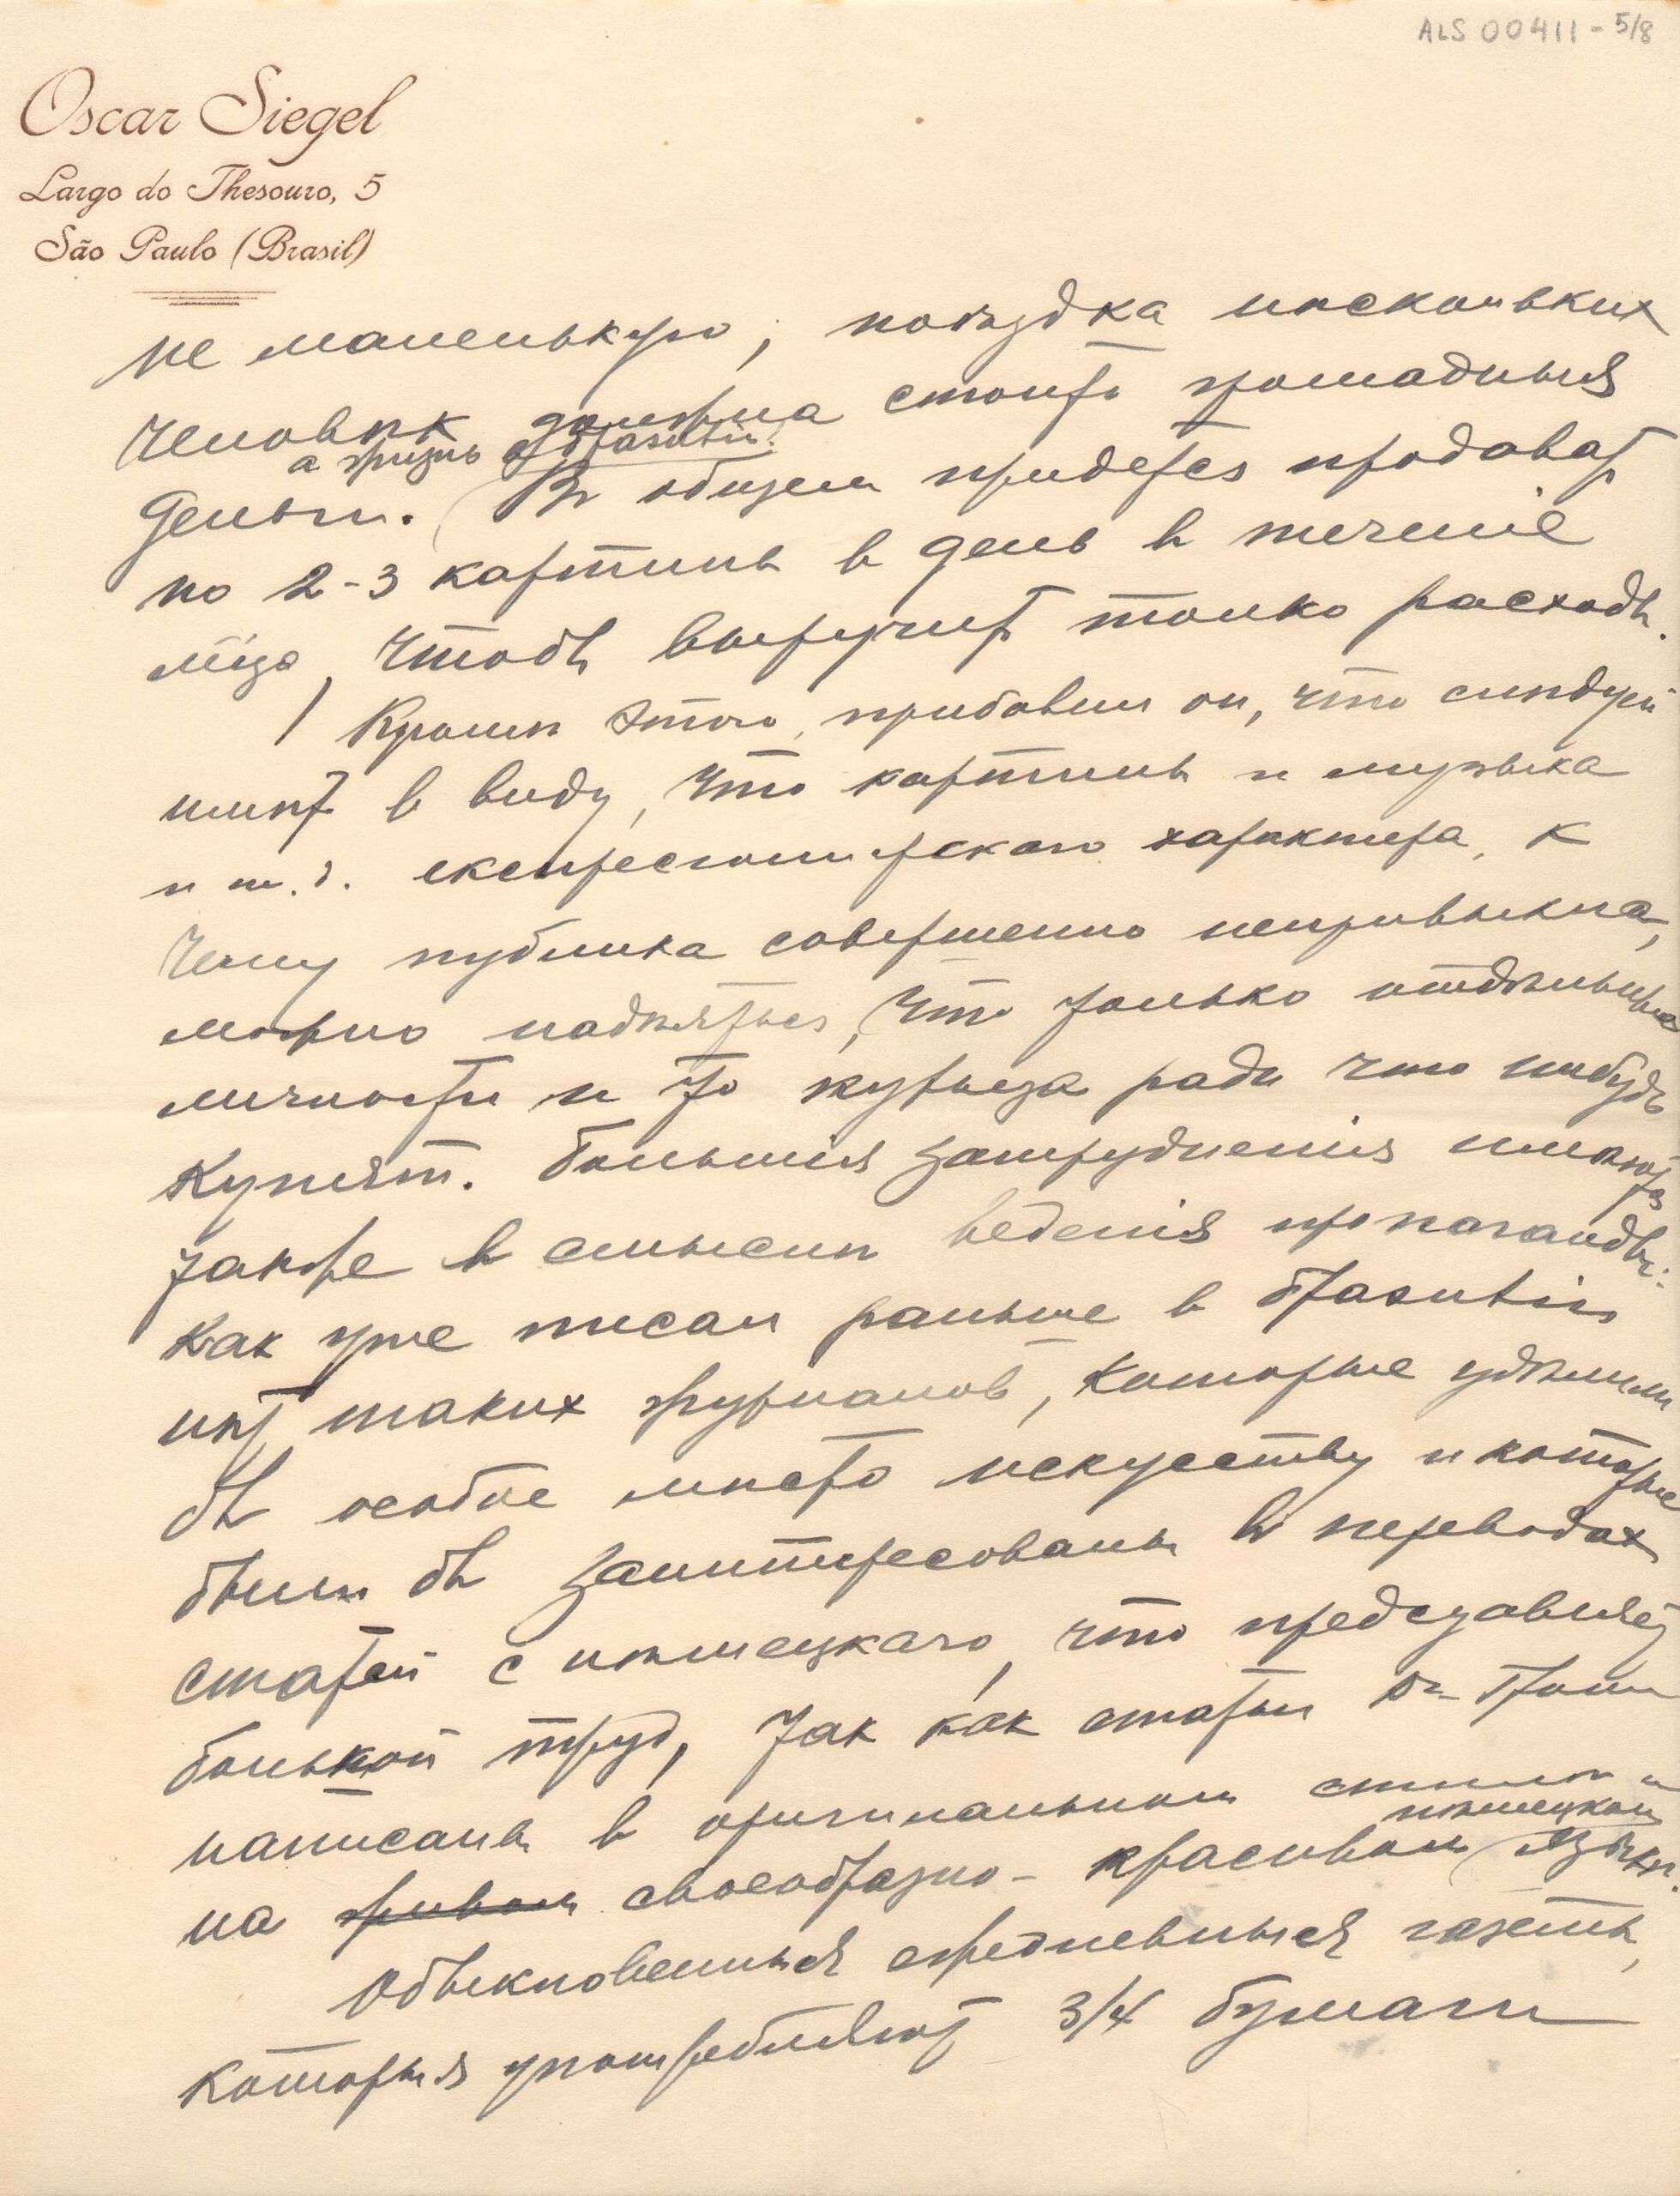 ALS 00411 - 5/8
Oscar Siegel
Largo do Thesouro, 5
São Paulo (Brasil)
не маленькую; поѣздка нѣскольких
человѣк должна стоить громадныя
а жизнь в Бразилии
деньги. В общем придется продават
по 2-3 картины в день в течение
м-ца, чтобы выручит толко расходы.
Кромѣ этого, прибавил он, что слѣдует
имѣт в виду, что картины и музыка
и т.д. експресионистскаго характера, к
чему публика совершенно непривыкла,
можно надѣяться, что только отдѣльныя
личности и то курьеза ради что нибудь
купят. Большия затруднения имѣются
также в смыслѣ ведения пропаганды:
Как уже писал раньше в Бразилии
нѣт таких журналов, которые удѣлили
бы особое мѣсто искусству и которые
были бы заинтересованы в переводах
статей с нѣмецкаго, что представляет
большой труд, так как статьи
написаны в оригинальном стилѣ и
нѣмецком
на живом своеобразно-красивом языкѣ.
Обыкновенныя ежедневныя газеты,
которыя употребляют 3/4 бумаги